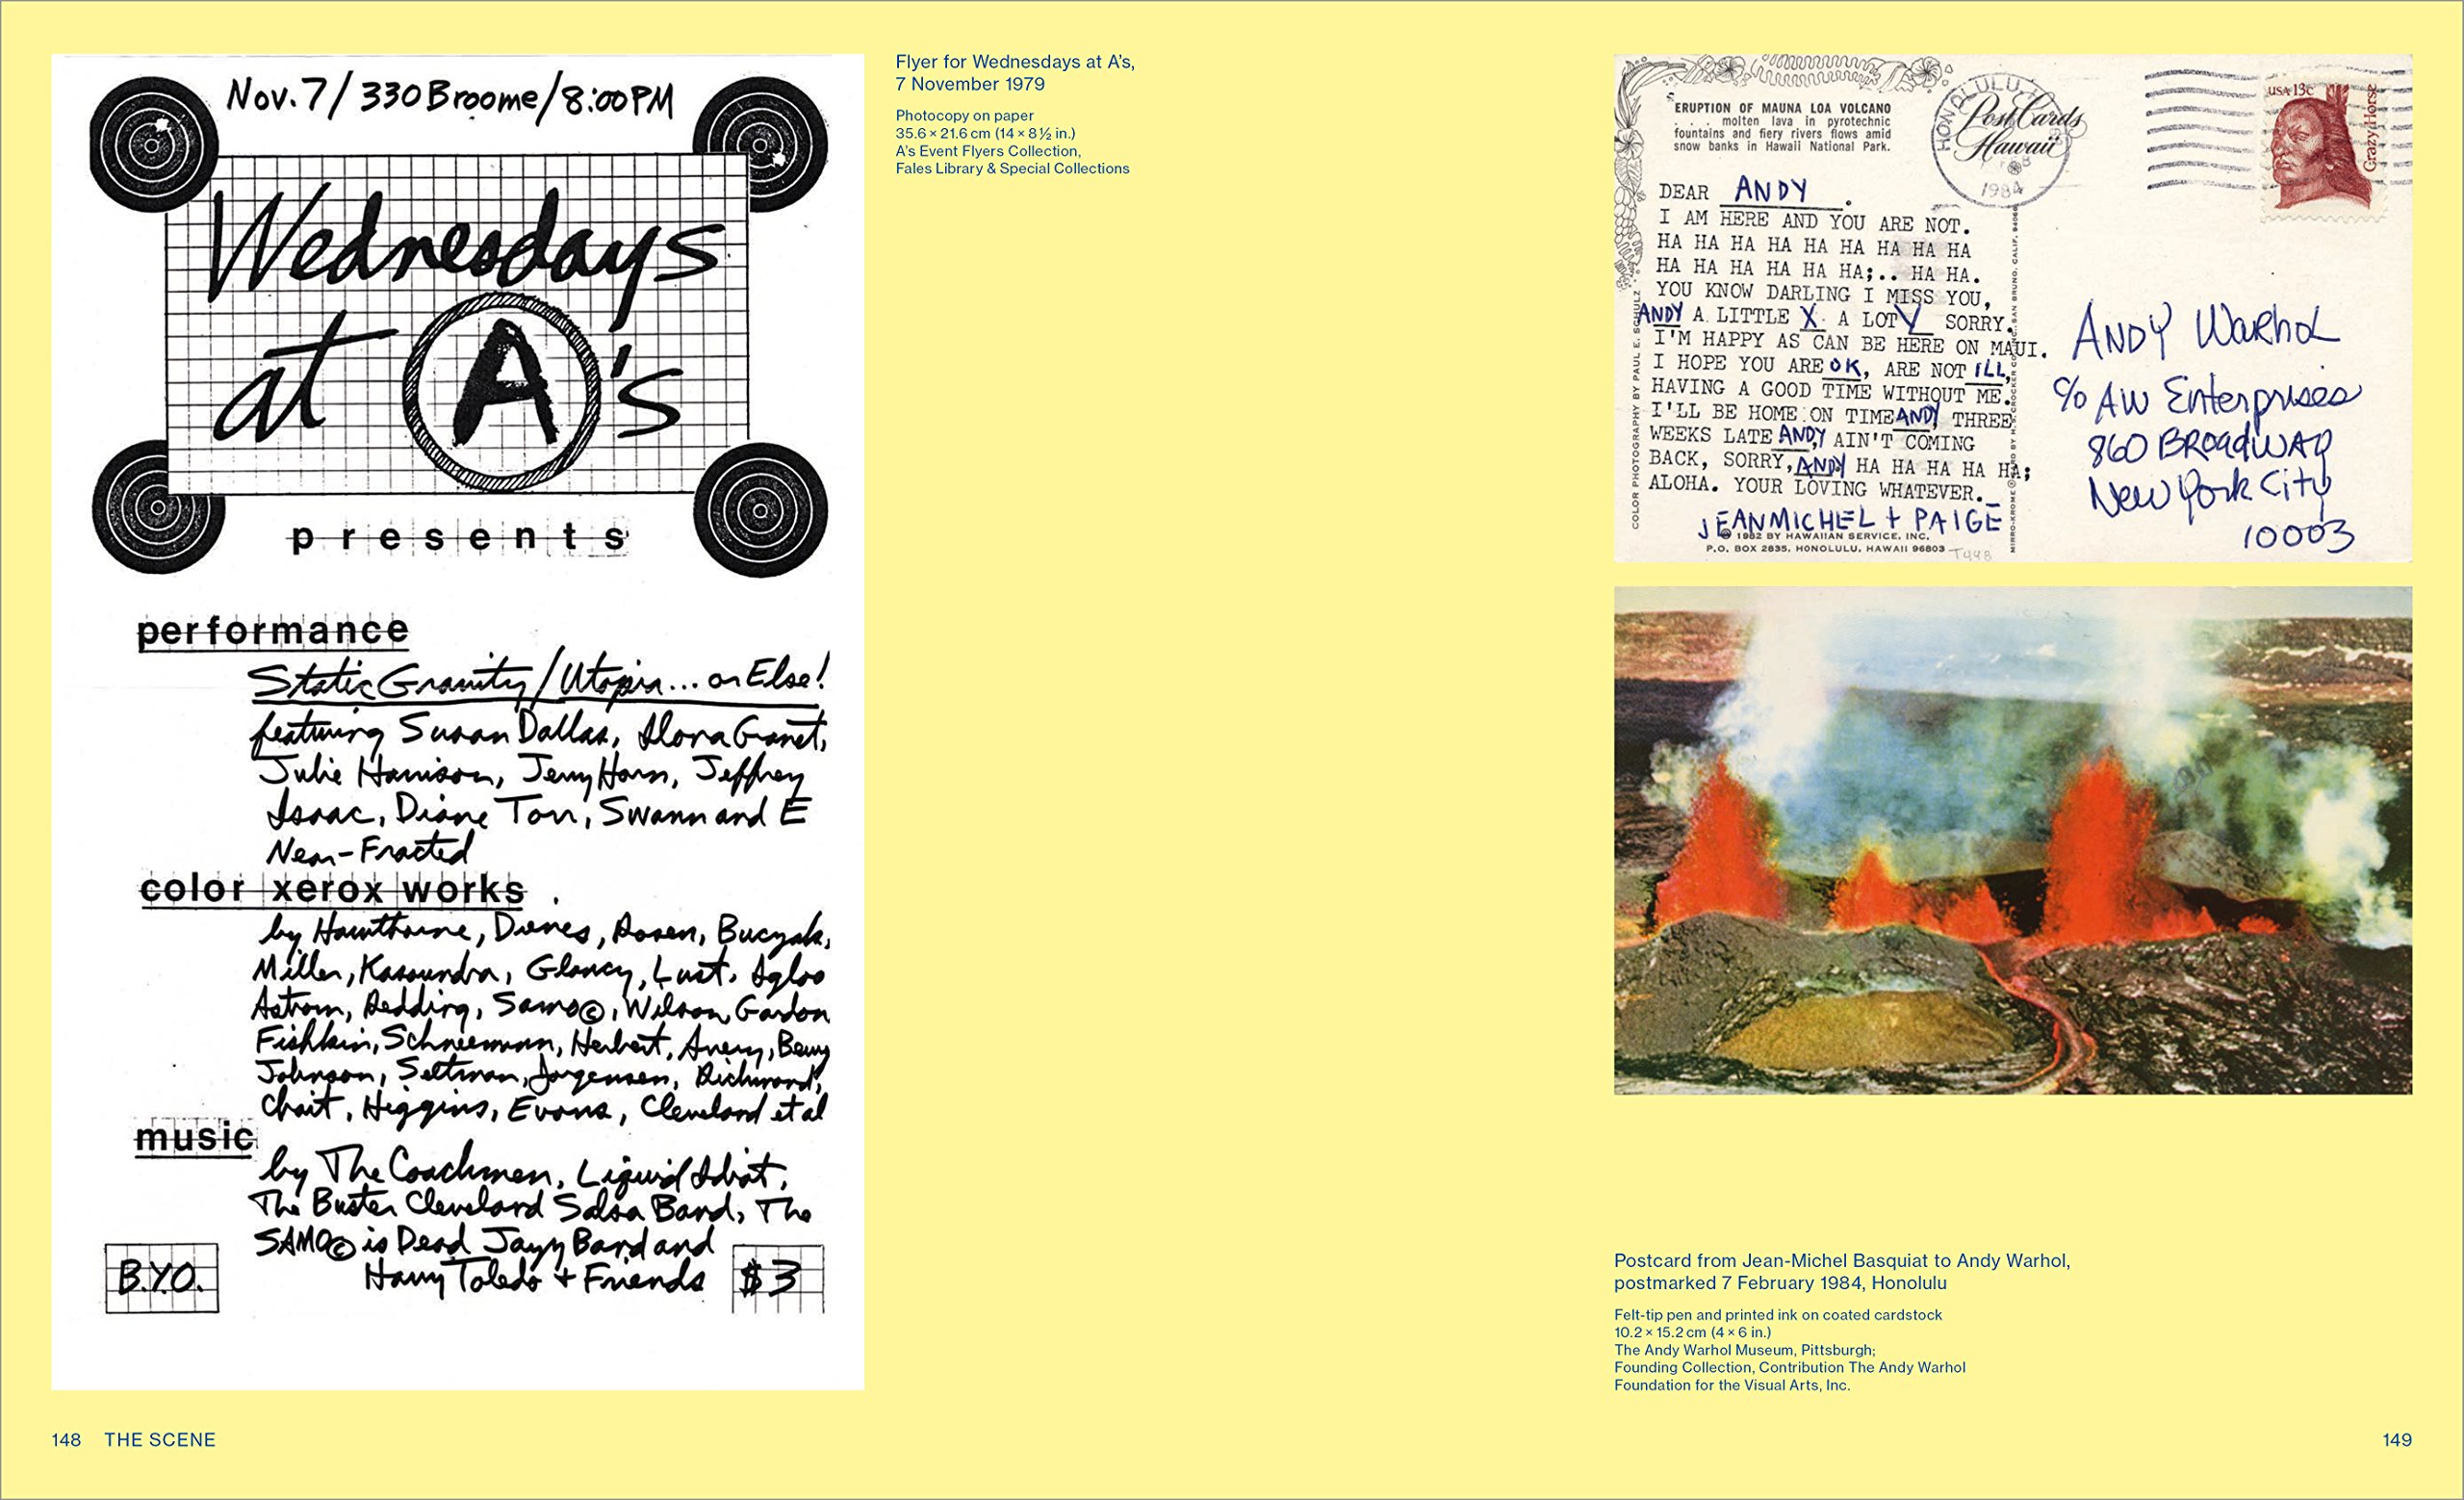 Nov. 7 / 330 Broome / 8:00 PM
Wednesdays
at A's
presents
performance
Static Gravity / Utopia... or Else!
featuring Susan Dallas, Ilona Granet,
Julie Harrison, Jerry Horn, Jeffrey
Isaac, Diane Torr, Swann and E
Near-Fracted
color xerox works
by Hawthorne, Dienes, Rosen, Buczak,
Miller, Kassundra, Glancy, Lust, Igloo
Astrom, Redding, Samo©, Wilson, Gordon
Fishkin, Schneemann, Herbert, Avery, Berry
Johnson, Seltman, Jorgensen, Richmond,
Chait, Higgins, Evans, Cleveland et al
music
by The Coachmen, Liquid Idiot,
The Buster Cleveland Salsa Band, The
SAMO© is Dead Jazz Band and
Harry Toledo + Friends
B.Y.O.
$3
Flyer for Wednesdays at A's,
7 November 1979
Photocopy on paper
35.6 × 21.6 cm (14 × 8 ½ in.)
A's Event Flyers Collection,
Fales Library & Special Collections
ERUPTION OF MAUNA LOA VOLCANO
. . . molten lava in pyrotechnic
fountains and fiery rivers flows amid
snow banks in Hawaii National Park.
HONOLULU, H
Post Cards
Hawaii
1984
USA 13c
Crazy Horse
DEAR ANDY.
I AM HERE AND YOU ARE NOT.
HA HA HA HA HA HA HA HA HA
HA HA HA HA HA HA;.. HA HA.
YOU KNOW DARLING I MISS YOU,
ANDY A LITTLE X A LOT V SORRY.
I'M HAPPY AS CAN BE HERE ON MAUI.
I HOPE YOU ARE OK, ARE NOT ILL,
HAVING A GOOD TIME WITHOUT ME.
I'LL BE HOME ON TIME ANDY, THREE
WEEKS LATE ANDY, AIN'T COMING
BACK, SORRY, ANDY HA HA HA HA HA;
ALOHA. YOUR LOVING WHATEVER.
JEANMICHEL + PAIGE
© 1982 BY HAWAIIAN SERVICE, INC.
P.O. BOX 2835, HONOLULU, HAWAII 96803
T448
COLOR PHOTOGRAPHY BY PAUL E. SCHULZ
MIRRO-KROME® CARD BY H.S. CROCKER CO., INC., SAN BRUNO, CALIF. 94066
ANDY WaRhoL
c/o AW Enterprises
860 BRoadWAY
New York City
10003
Postcard from Jean-Michel Basquiat to Andy Warhol,
postmarked 7 February 1984, Honolulu
Felt-tip pen and printed ink on coated cardstock
10.2 × 15.2 cm (4 × 6 in.)
The Andy Warhol Museum, Pittsburgh;
Founding Collection, Contribution The Andy Warhol
Foundation for the Visual Arts, Inc.
148 THE SCENE
149